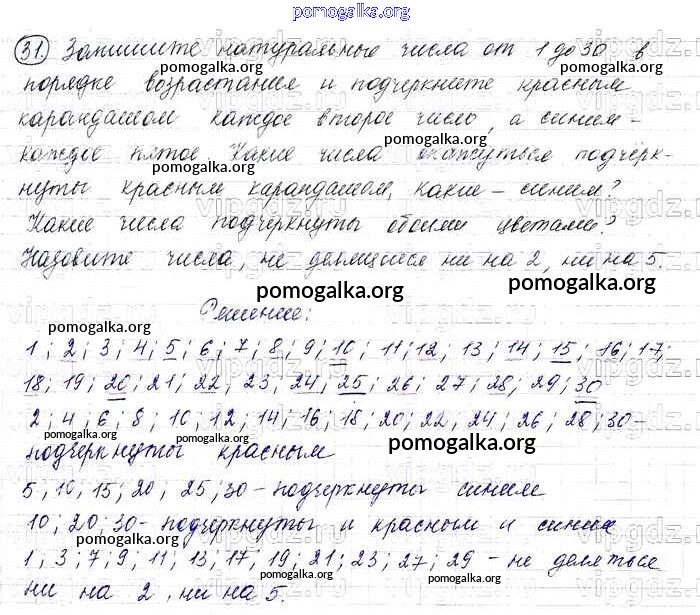 pomogalka.org
31. Запишите натуральные числа от 1 до 30 в
pomogalka.org pomogalka.org
порядке возрастания и подчеркните красным
pomogalka.org
карандашом каждое второе число, а синим -
pomogalka.org
каждое пятое. Какие числа окажуться подчёрк-
нуты красным карандашом, какие - синим?
pomogalka.org
Какие числа подчёркнуты обоими цветами?
Назовите числа, не делящиеся ни на 2, ни на 5.
pomogalka.org pomogalka.org
Решение:
pomogalka.org
1; 2; 3; 4; 5; 6; 7; 8; 9; 10; 11; 12; 13; 14; 15; 16; 17;
pomogalka.org
18; 19; 20; 21; 22; 23; 24; 25; 26; 27; 28; 29; 30
pomogalka.org
2; 4; 6; 8; 10; 12; 14; 16; 18; 20; 22, 24; 26; 28; 30-
pomogalka.org pomogalka.org pomogalka.org
подчёркнуты красным
5, 10, 15; 20, 25; 30 - подчёркнуты синим
pomogalka.org
10; 20; 30 - подчёркнуты и красным и синим
1; 3; 7; 9; 11; 13; 17; 19; 21; 23; 27; 29 - не деляться
pomogalka.org pomogalka.org
ни на 2, ни на 5.
pomogalka.org